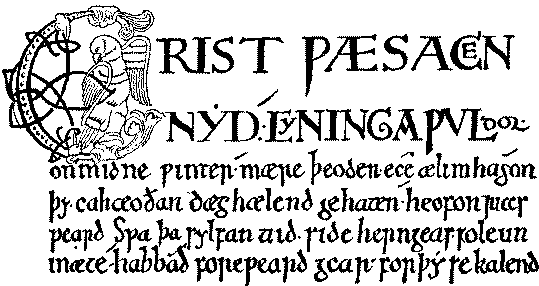 CRIST ǷÆS ACEN
NẎD. CẎNINGA ǷVLDOR.
on midne ƿinter. mære þeoden. ece ælmihtig. on
þẏ eahteoðan dæg hælend gehaten. heofon rices
ƿeard Sƿa þa sẏlfan tiid. side herigeas folc un
mæte. habbað foreƿeard gear. forþẏ se kalend